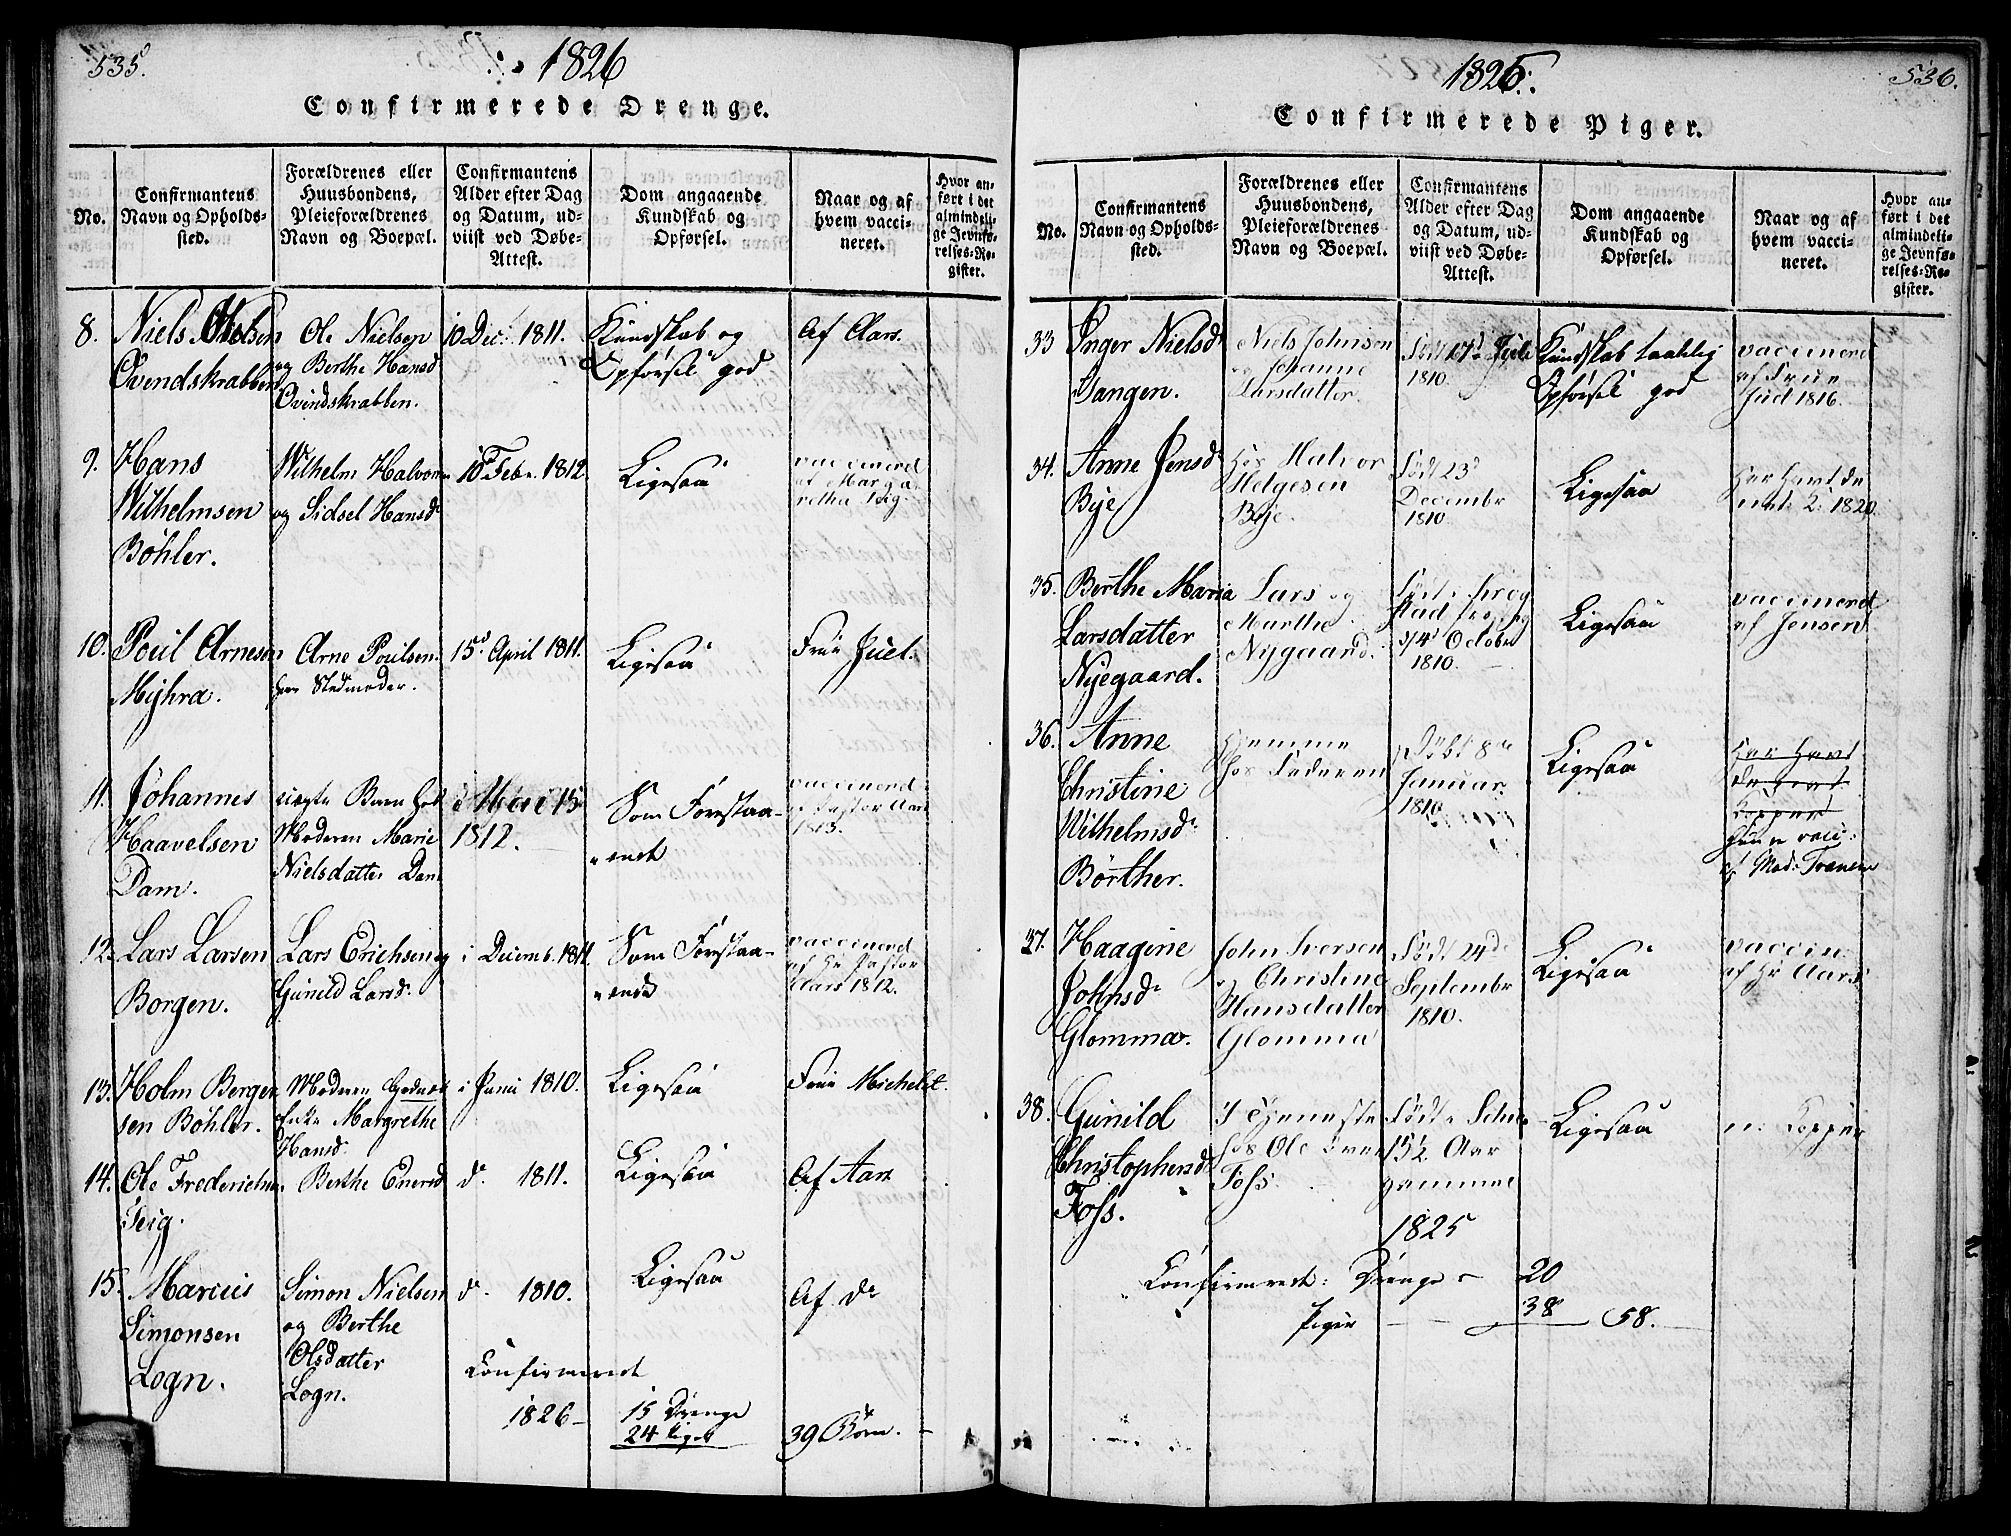 535.
1826
Confirmerede Drenge.
No.
Confirmantens
Navn og Opholds-
sted.
Forældrenes eller
Huusbondens,
Pleieforældrenes
Navn og Boepæl.
Confirmantens
Alder efter Dag
og Datum, ud-
viist ved Døbe-
Attest.
Dom angaaende
Kundskab og
Opførsel.
Naar og af
hvem vacci-
neret.
Hvor an-
ført i det
almindeli-
ge Jevnfø-
relses-Re-
gister.
8.
Niels Olsen
Ovendskrabben
Ole Nielsen
og Berthe Hansd
Ovindskrabben.
10 Dec. 1811.
Kundskab og
Opførsel god
Af Aars.
9.
Hans
Wilhelmsen
Böhler.
Wilhelm Halvorsen
og Sidsel Hansd
10 Febr. 1812.
Ligesaa
vaccinered
af Marga-
retha
10.
Poul Arnesen
Mÿhra.
Arne Poulsen.
hans Stedmoder.
15 April 1811.
Ligesaa
Frue Juel.
11.
Johannes
Haavelsen
Dam.
uægte Barn hos
Moderen Marie
Nielsdatter Dam
15
1812.
Som Forestaa-
ende
vaccinered
af Pastor Aars
1813.
12.
Lars Larsen
Borgen.
Lars Erichsen og
Gunild Larsd.
i Decemb. 1811.
Som Forestaa-
ende
vaccinered
af Hr Pastor
Aars 1812.
13.
Holm Berger
sen Böhler.
Moderen
Enke Margrethe
Hansd.
i Juni 1810.
Ligesaa
Frue Michelet.
14.
Ole Frederichsen
Teig.
Berthe Enersd
do. 1811.
Ligesaa
Af Aars
15.
Marius
Simonsen
Logn.
Simon Nielsen
og Berthe
Olsdatter
Logn.
do. 1810.
Ligesaa
Af do
Confirmeret
1826 –
15 Drenge
24 Piger
39 Børn. –
1825.
536.
Confirmerede Piger.
No.
Confirmantens
Navn og Opholds-
sted.
Forældrenes eller
Huusbondens,
Pleieforældrenes
Navn og Boepæl.
Confirmantens
Alder efter Dag
og Datum, ud-
viist ved Døbe-
Attest.
Dom angaaende
Kundskab og
Opførsel.
Naar og af
hvem vacci-
neret.
Hvor an-
ført i det
almindeli-
ge Jevnfø-
relses-Re-
gister.
33
Inger Nielsd
Tangen.
Niels Johnsen
og Johanne
Larsdatter.
Født 17d Juli
1810.
Kundskab taalelig
Opførsel god
vaccinered
af Frue
Juel 1816.
34.
Anne Jensd
Bye
hos Halvor
Helgesen
Bÿe.
Født 23d
Decembr
1810.
Ligesaa
35.
Berthe Maria
Larsdatter
Nÿegaard.
Lars og
Marthe
Nygaard.
Født i Krog
stad
October
1810. –
Ligesaa
vaccinered
af Jensen
36.
Anne
Christine
Wilhelmsd
Börther.
Hjemme
hos Faderen
Døbt 8de
Januar.
1810.
Ligesaa
Har havt
Kopper
af Mad: Tranem
37.
Haagine
Johnsd
Glomma.
John Iversen
og Christine
Hansdatter
Glomma
Født 24de
Septembr
1810.
Ligesaa
vaccin
af Hr Aars
38.
Gunild
Christophersd
Foss.
I Tjeneste
hos Ole
Foss.
Født
15½ Aar
gammel
Ligesaa
Kopper
1825
Confirmeret: Drenge – 20
Piger – – 38 58. –